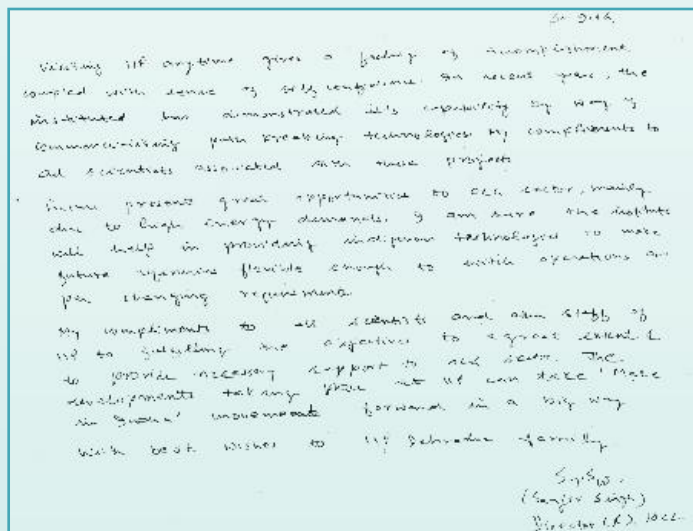 Visiting IIP anytime gives a feeling of accomplishment
coupled with sense of self confidence. In recent years, the
instituted has demonstrated it's capability by way of
commercialising path breaking technologies My compliments to
all scientists associated with these projects
Future present great opportunities to sector, mainly
due to high energy demands. I am sure the institute
will help in providing indigenous technologies to make
future refineries flexible enough to switch operations as
per changing requirements
My compliments to all scientists and staff of
IIP to the objectives to a great extent &
to provide necessary support to sector. The
developments taking place at IIP can take 'Make
in India' movement forward in a big way
With best wishes to IIP Dehradun family
(Sanjiv Singh)
Director (R), IOCL